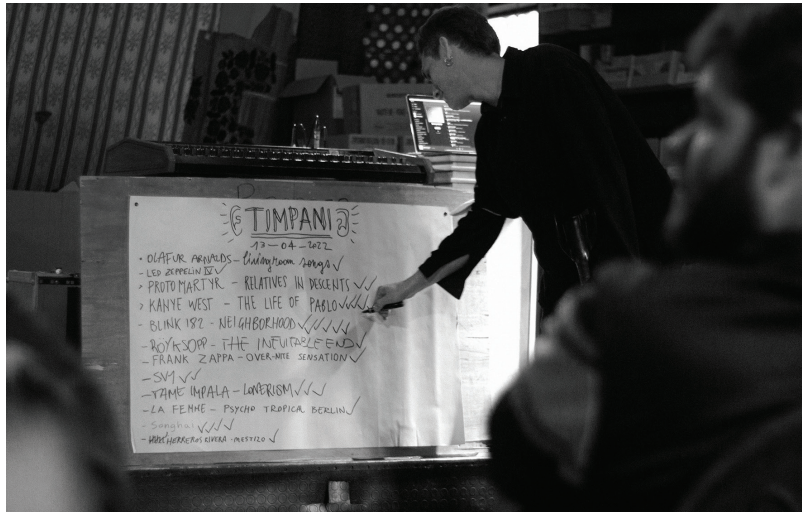 TIMPANI
13-04-2022
• OLAFUR ARNALDS - livingroom songs ✓
- LED ZEPPELIN IV ✓
> PROTOMARTYR - RELATIVES IN DESCENTS ✓✓
> KANYE WEST - THE LIFE OF PABLO ✓✓✓✓
- BLINK 182 - NEIGHBORHOOD ✓✓✓✓✓
- RÖYKSOPP - THE INEVITABLE END ✓
- FRANK ZAPPA - OVER-NITE SENSATION ✓
- SVI ✓✓
- TAME IMPALA - LONERISM ✓✓✓
- LA FEMME - PSYCHO TROPICAL BERLIN ✓
- Songhai ✓✓✓
- HERREROS RIVERA - MESTIZO ✓